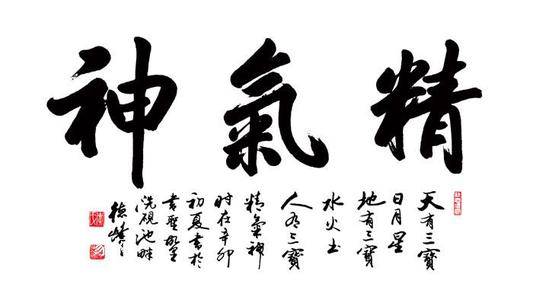 精氣神
天有三寶
日月星
地有三寶
水火土
人有三寶
精氣神
时在辛卯
初夏書於
書聖故里
洗硯池畔
德